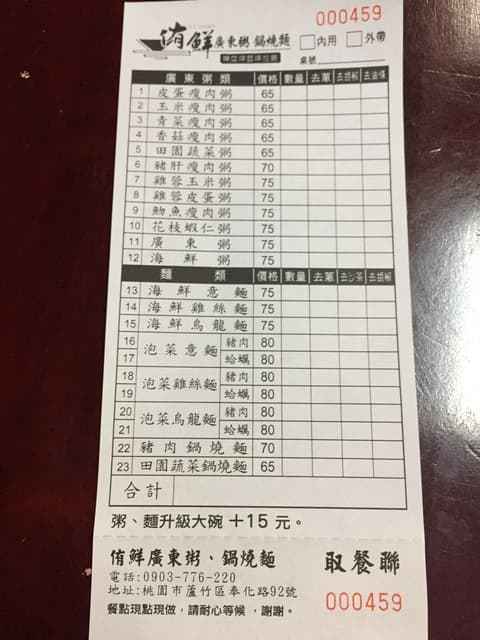 000459
侑鮮 廣東粥 鍋燒麵 內用 外帶
桌號
廣東粥類 價格 數量 去蔥 去胡椒 去油條
1 皮蛋瘦肉粥 65
2 玉米瘦肉粥 65
3 青菜瘦肉粥 65
4 香菇瘦肉粥 65
5 田園蔬菜粥 65
6 豬肝瘦肉粥 70
7 雞蓉玉米粥 75
8 雞蓉皮蛋粥 75
9 魩魚瘦肉粥 75
10 花枝蝦仁粥 75
11 廣東粥 75
12 海鮮粥 75
麵類 價格 數量 去蔥 去沙茶 去胡椒
13 海鮮意麵 75
14 海鮮雞絲麵 75
15 海鮮烏龍麵 75
16 泡菜意麵 豬肉 80
17 蛤蠣 80
18 泡菜雞絲麵 豬肉 80
19 蛤蠣 80
20 泡菜烏龍麵 豬肉 80
21 蛤蠣 80
22 豬肉鍋燒麵 70
23 田園蔬菜鍋燒麵 65
合計
粥、麵升級大碗+15元。
侑鮮廣東粥、鍋燒麵 取餐聯
電話:0903-776-220
地址:桃園市蘆竹區奉化路92號
餐點現點現做,請耐心等候,謝謝。 000459